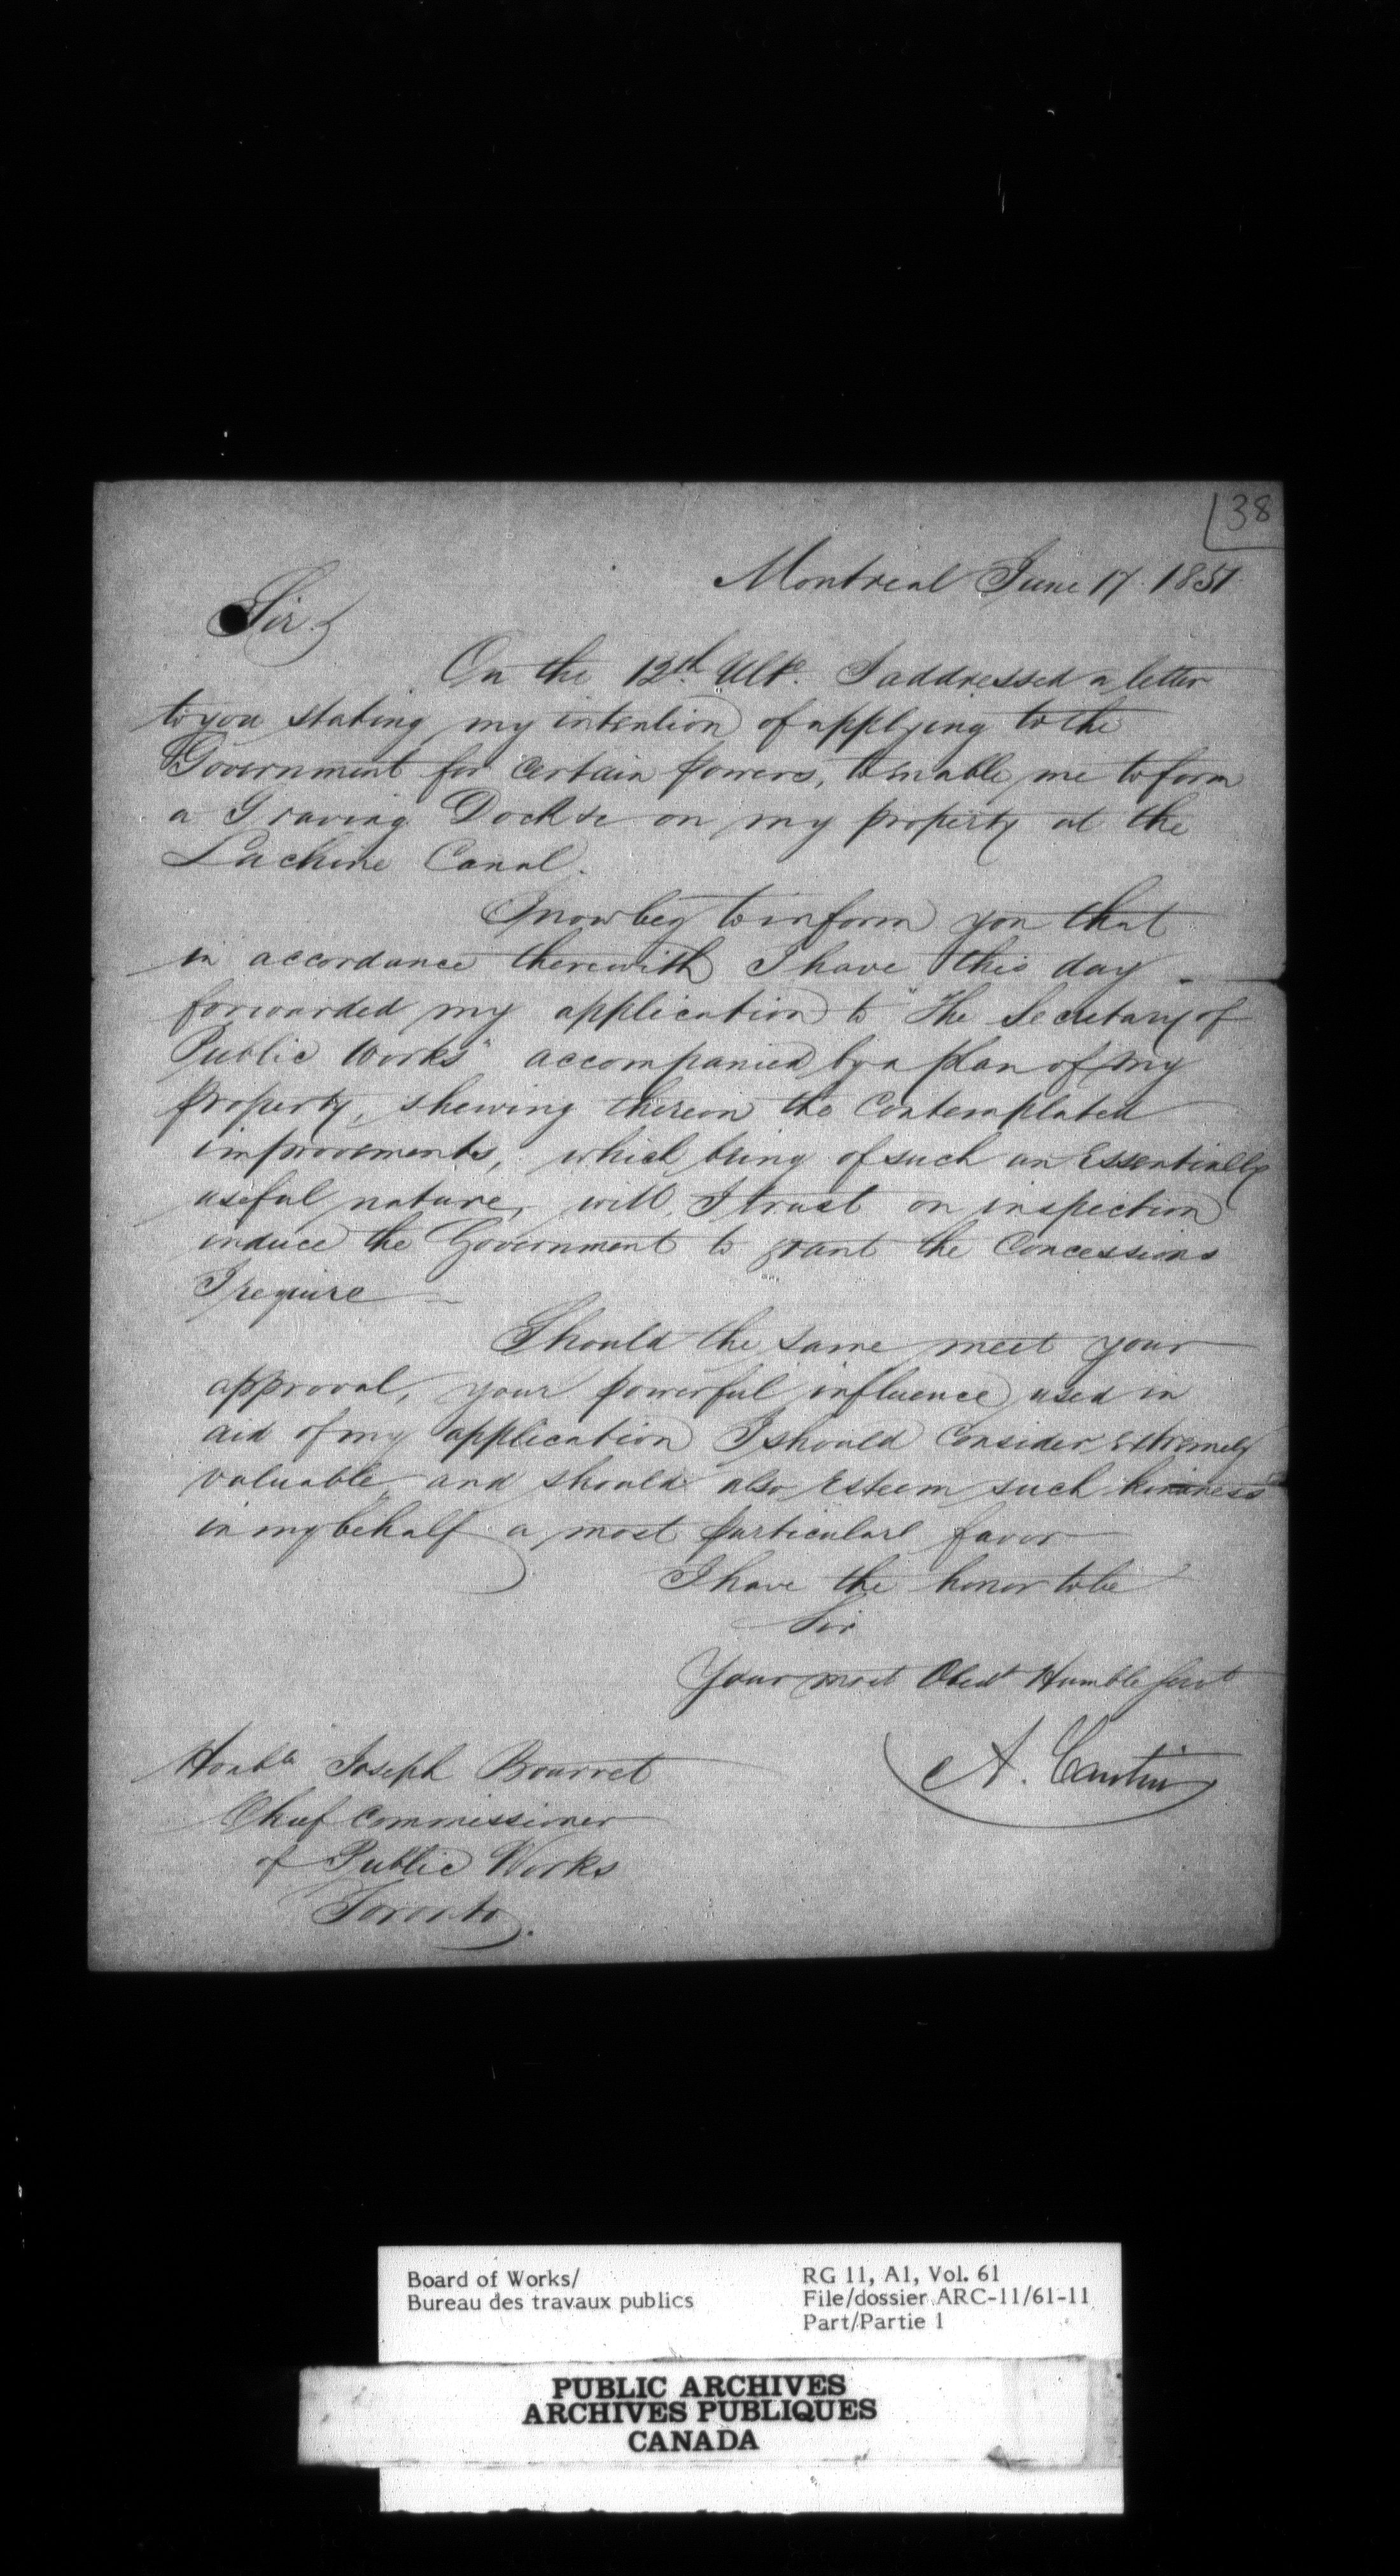 38
Montreal June 17. 1851
Sir,
On the 12th Ulto. I addressed a letter
to you stating my intention of applying to the
Government for certain powers, to enable me to form
a Graving Dock &c on my property at the
Lachine Canal.
I now beg to inform you that
in accordance therewith I have this day
forwarded my application to "The Secretary of
Public Works" accompanied by a plan of my
property, shewing thereon the Contemplated
improvements, which being of such an Essentially
useful nature, will, I trust on inspection
induce the Government to grant the Concessions
I require —
Should the same meet your
approval, your powerful influence used in
aid of my application I should Consider Extremely
valuable, and should also Esteem such kindness
in my behalf a most particular favor
I have the honor to be
Sir
Your most Obedt Humble Servt
A. Cantin
Honble Joseph Bourret
Chief Commissioner
of Public Works
Toronto.
Board of Works/
Bureau des travaux publics
RG 11, A1, Vol. 61
File/dossier ARC-11/61-11
Part/Partie 1
PUBLIC ARCHIVES
ARCHIVES PUBLIQUES
CANADA